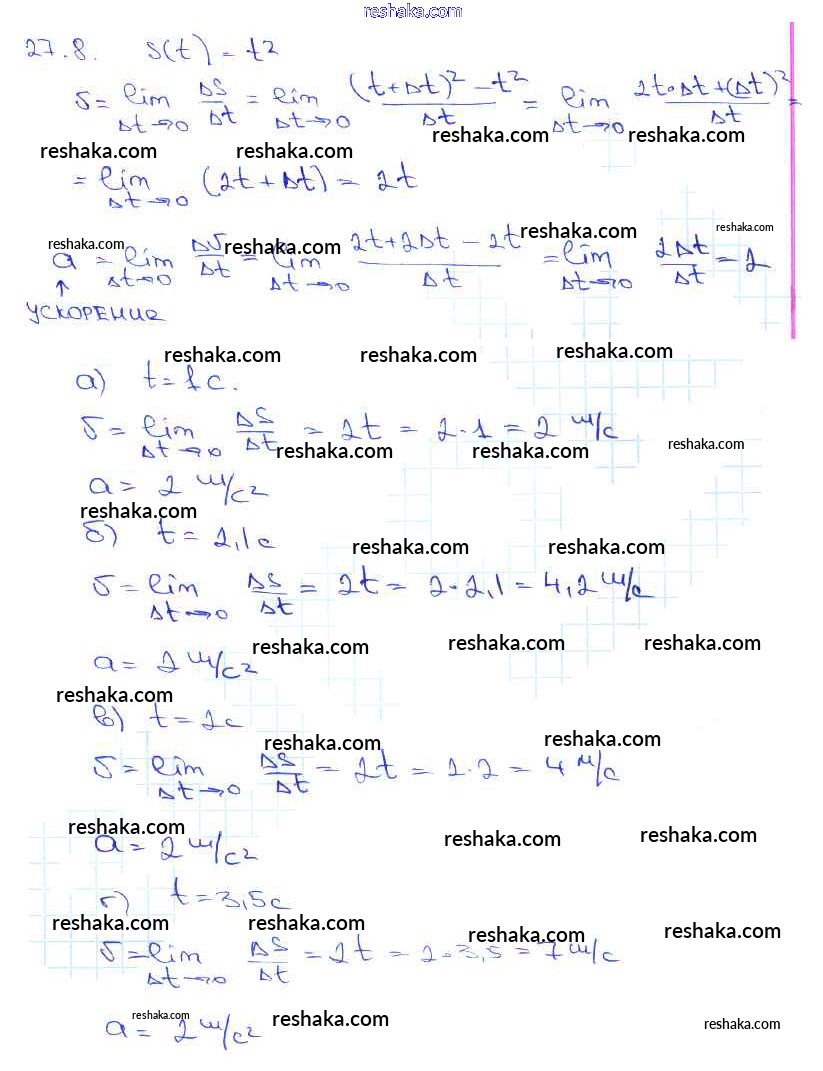 reshaka.com
27.8. S(t) = t²
υ = lim Δt→0 ΔS/Δt = lim Δt→0 ((t+Δt)² − t²)/Δt = lim Δt→0 (2t·Δt + (Δt)²)/Δt =
reshaka.com reshaka.com reshaka.com reshaka.com
= lim Δt→0 (2t + Δt) = 2t
reshaka.com reshaka.com reshaka.com reshaka.com
a = lim Δt→0 Δυ/Δt = lim Δt→0 (2t + 2Δt − 2t)/Δt = lim Δt→0 2Δt/Δt = 2
↑
УСКОРЕНИЕ
reshaka.com reshaka.com reshaka.com
а) t = 1 с.
υ = lim Δt→0 ΔS/Δt = 2t = 2·1 = 2 м/с
reshaka.com reshaka.com reshaka.com
a = 2 м/с²
reshaka.com
б) t = 2,1 с
reshaka.com reshaka.com
υ = lim Δt→0 ΔS/Δt = 2t = 2·2,1 = 4,2 м/с
reshaka.com reshaka.com reshaka.com
a = 2 м/с²
reshaka.com
в) t = 2 с
reshaka.com reshaka.com
υ = lim Δt→0 ΔS/Δt = 2t = 2·2 = 4 м/с
reshaka.com reshaka.com reshaka.com
a = 2 м/с²
г) t = 3,5 с
reshaka.com reshaka.com reshaka.com reshaka.com
υ = lim Δt→0 ΔS/Δt = 2t = 2·3,5 = 7 м/с
reshaka.com reshaka.com reshaka.com
a = 2 м/с²